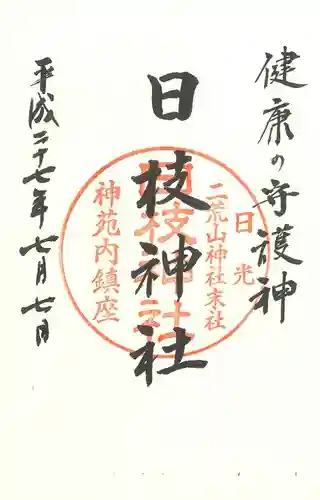 健康の守護神
日枝神社
平成二十七年七月七日
日光
二荒山神社末社
日枝神社
神苑内鎮座